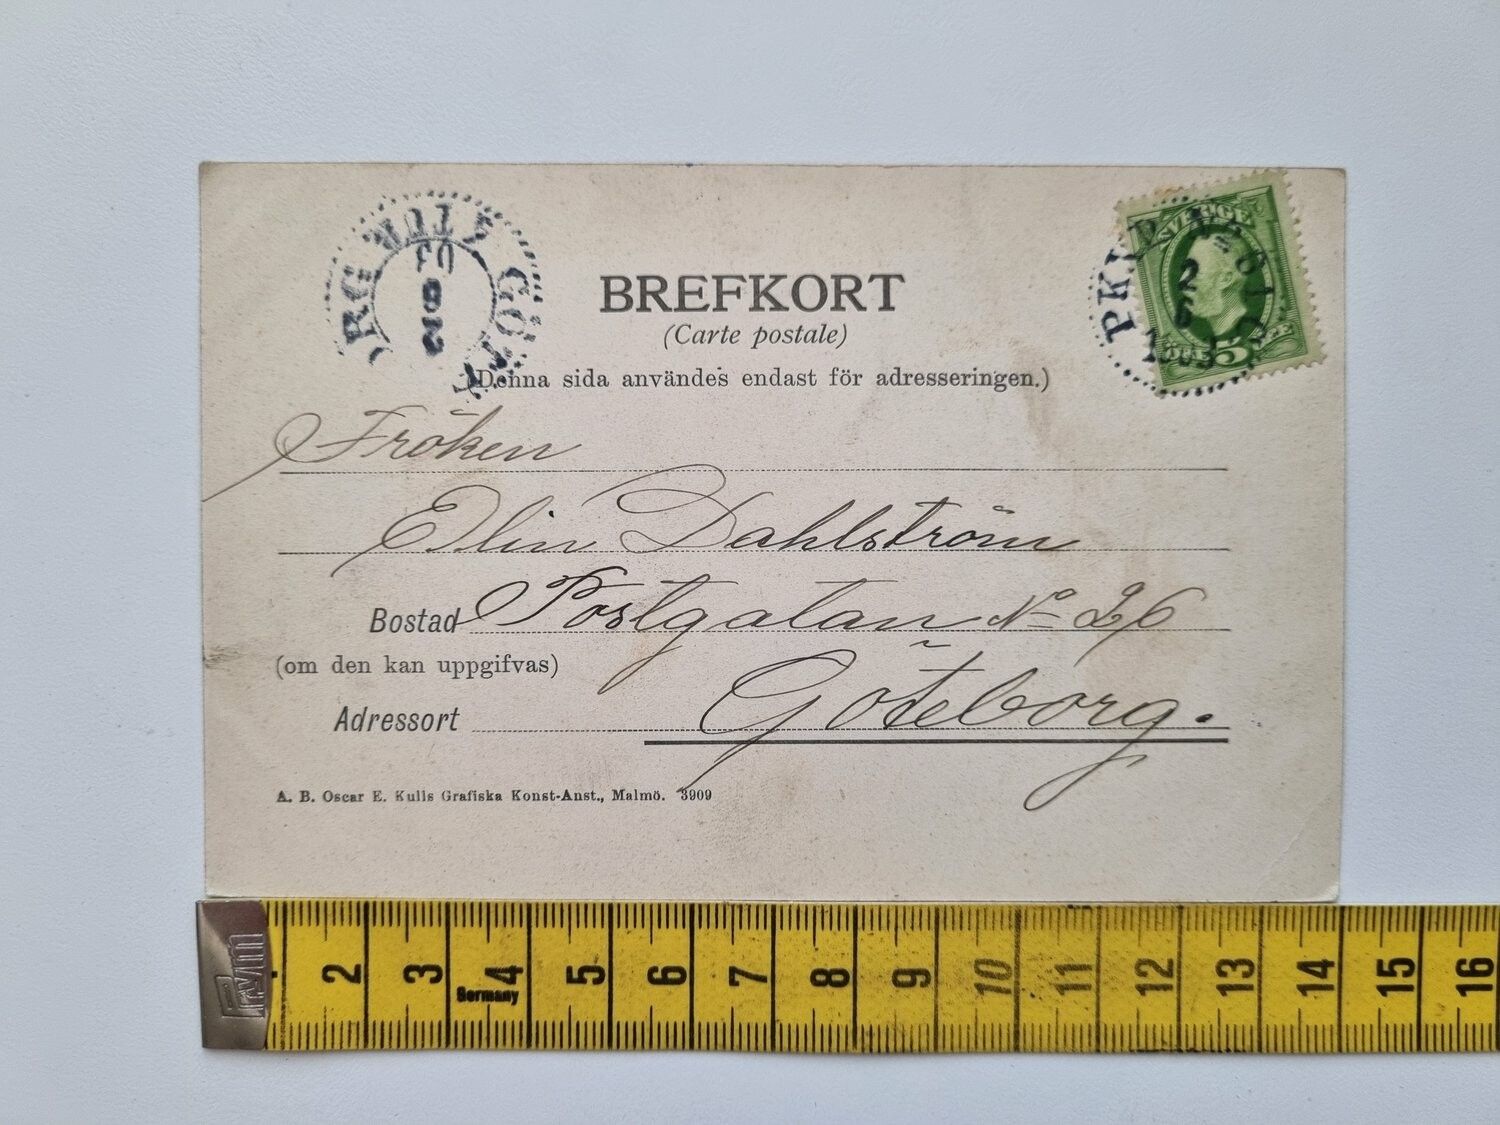 BREFKORT
(Carte postale)
(Denna sida användes endast för adresseringen.)
Fröken
Elin Dahlström
Bostad Postgatan No 26
(om den kan uppgifvas)
Göteborg.
Adressort
A. B. Oscar E. Kulls Grafiska Konst-Anst., Malmö. 3909
SVERIGE
5
PKXP
1903
GÖT
RG
03
8
2
Prym
2 3 4 5 6 7 8 9 10 11 12 13 14 15 16
Germany